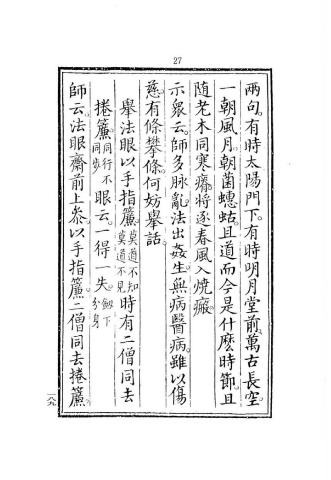 27
兩句。有時太陽門下。有時明月堂前。萬古長空。
一朝風月。朝菌蟪蛄。且道而今是什麽時節。且
随老木同寒瘠。將逐春風入燒瘢。
示衆云。師多脉亂。法出姦生。無病醫病。雖以傷
慈。有條攀條。何妨舉話。
舉法眼以手指簾。莫道不知莫道不見時有二僧同去
捲簾。同行不同步眼云。一得一失。劔下分身
師云。法眼齋前上叅。以手指簾。二僧同去捲簾。
一八九